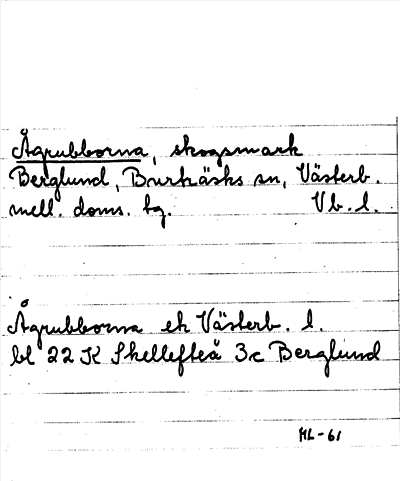 Ågrubborna, skogsmark
Berglund, Burträsks sn, Västerb.
mell. doms. tg. Vb. l.
Ågrubborna ek Västerb. l.
bl 22 K Skellefteå 3c Berglund
ML-61